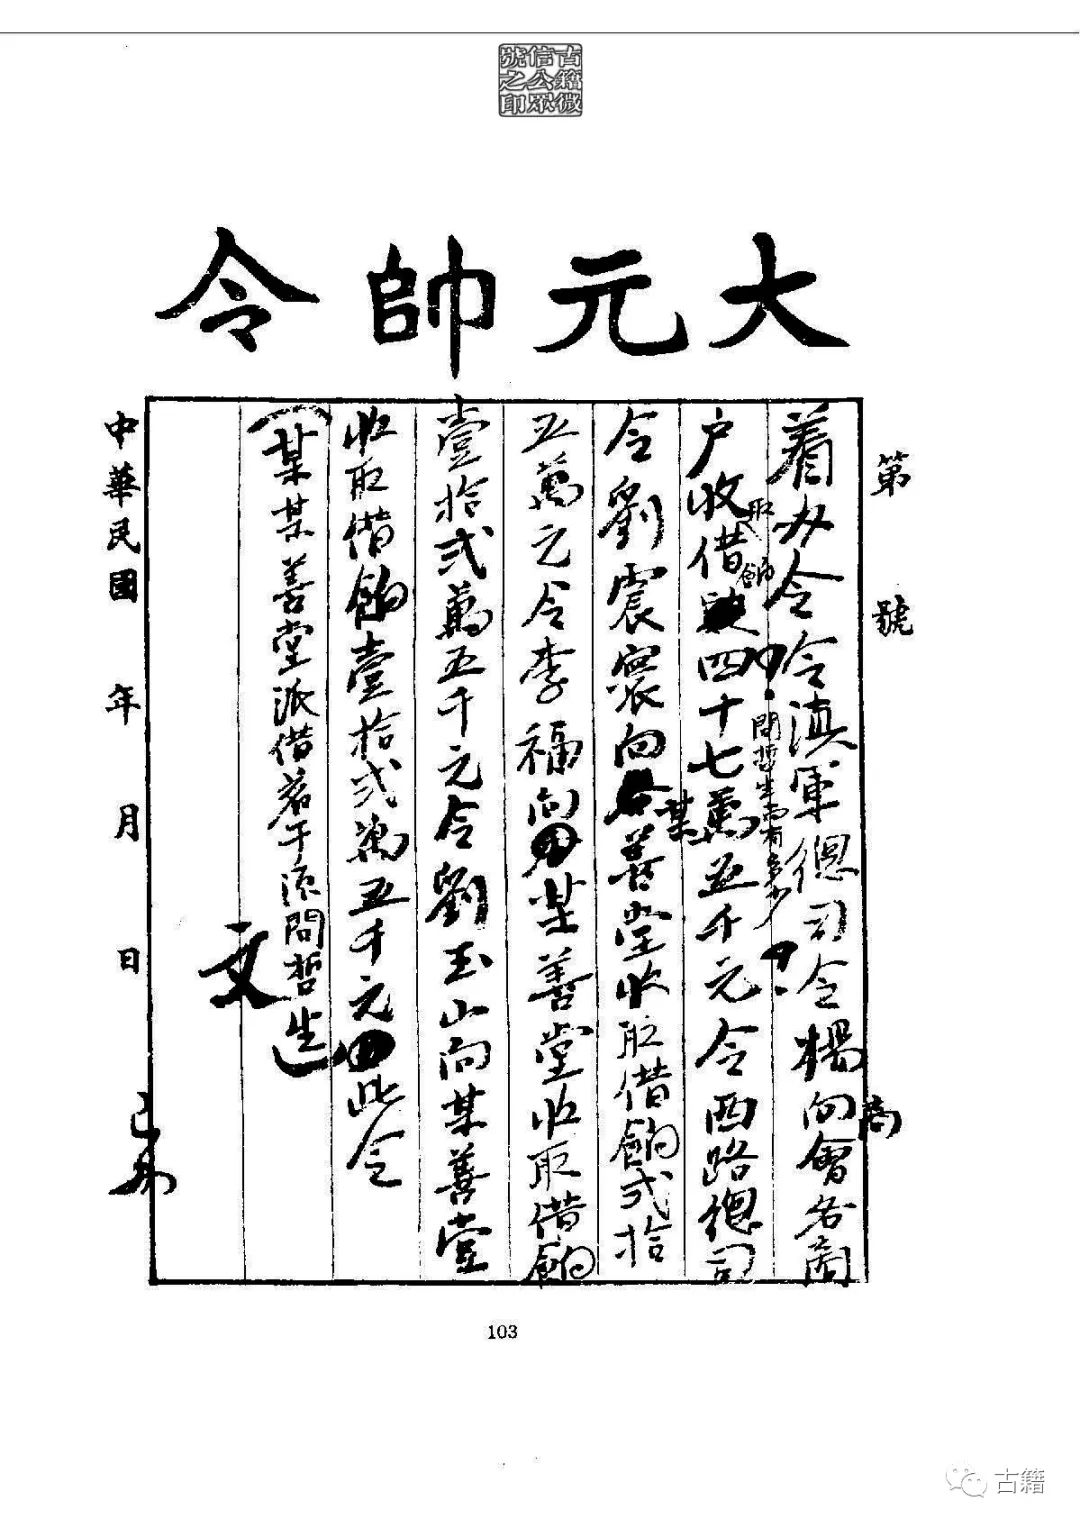 古籍微
信公眾
號之印
大元帥令
第 號
着办令令滇軍總司令楊向商會各商
户收取借餉四十七萬五千元令西路總司
問哲生需有多少
令劉震寰向某善堂收取借餉弍拾
五萬元令李福向某善堂收取借餉
壹拾弍萬五千元令劉玉山向某善堂
收取借餉壹拾弍萬五千元此令
(某某善堂派借若干須問哲生)
文
中華民國 年 月 日
已办
103
古籍